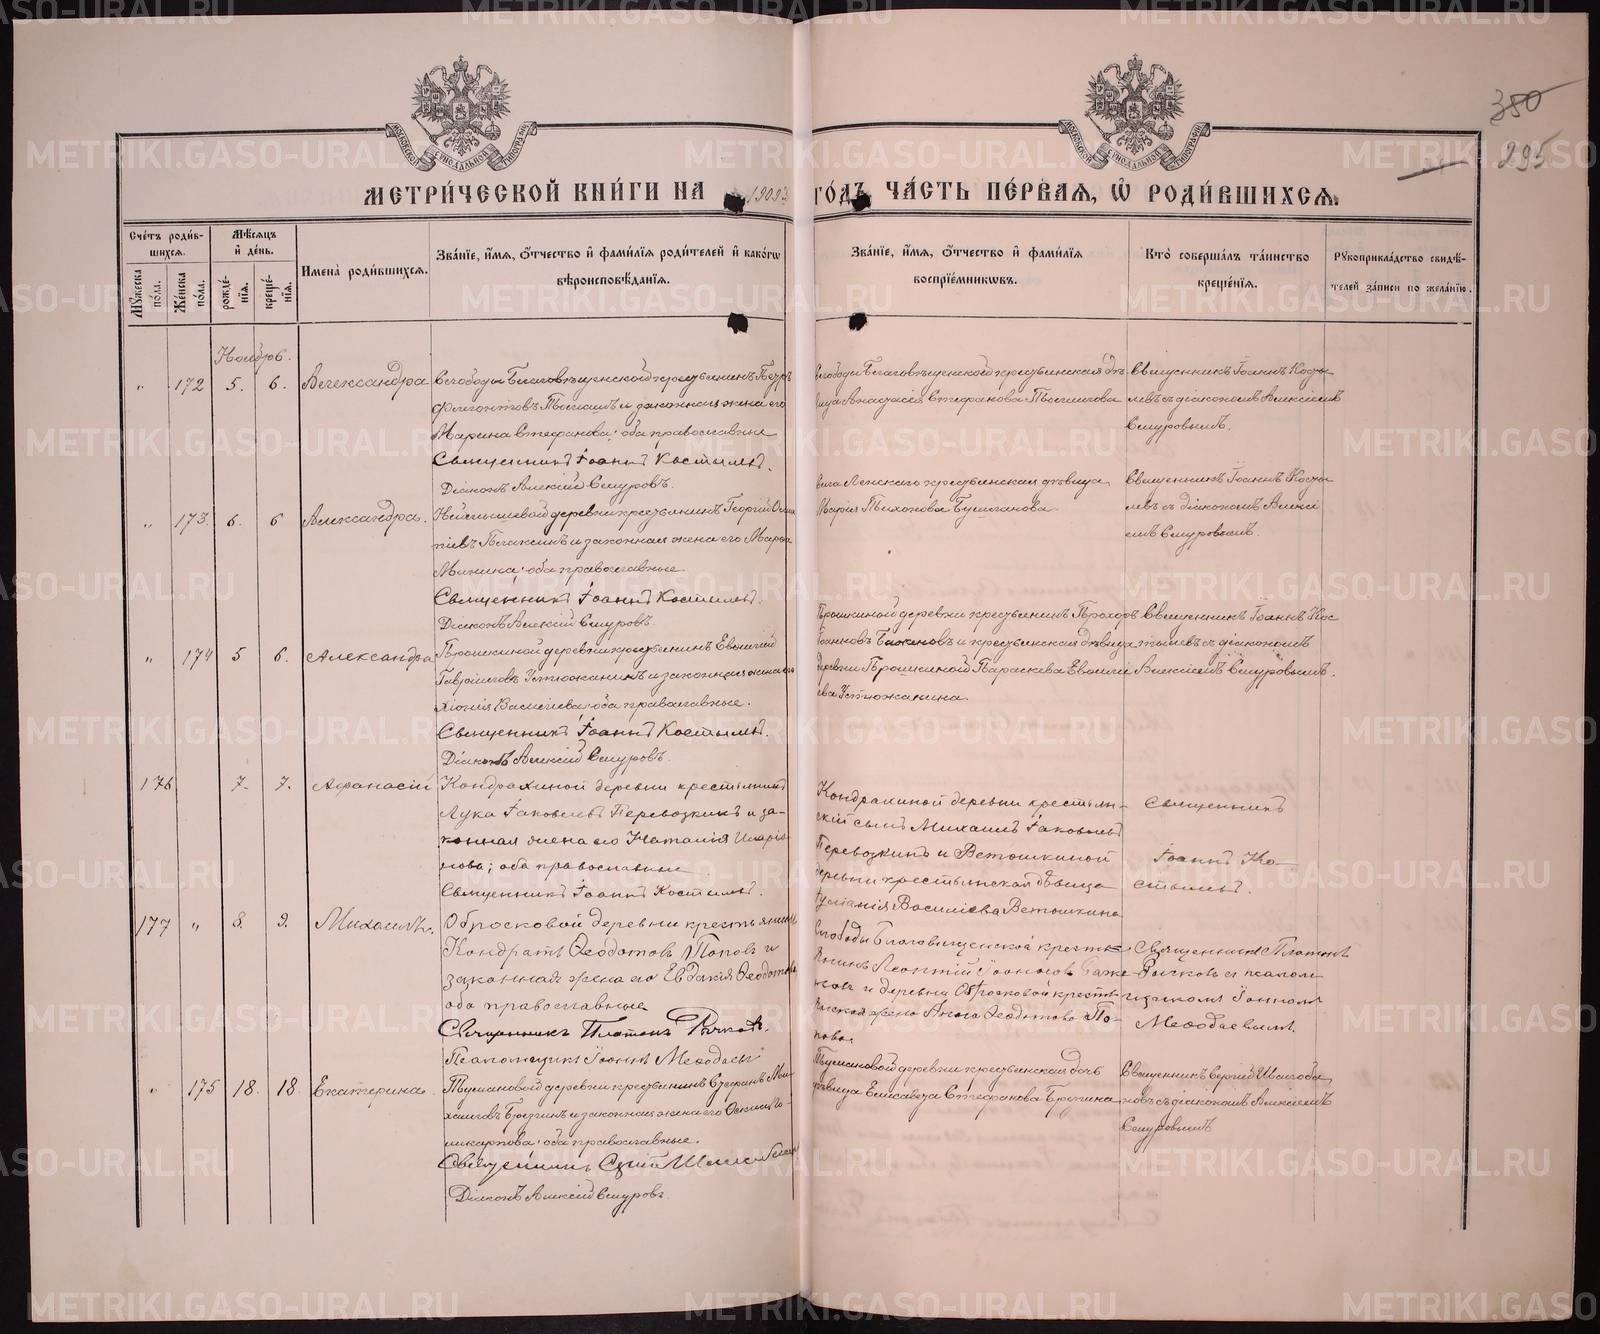 350
295
МЕТРИЧЕСКОЙ КНИГИ НА 1909 ГОДЪ ЧАСТЬ ПЕРВАЯ, Ѡ РОДИВШИХСЯ.
Счетъ родив-
шихся.
Мѣсяцъ
и день.
Мужеска пола.
Женска пола.
рожде-
нія.
креще-
нія.
Имена родившихся.
Званіе, имя, ѻтчество и фамилія родителей и какогѡ
вѣроисповѣданія.
Званіе, имя, ѻтчество и фамилія
воспріемникѡвъ.
Кто совершалъ таинство
крещенія.
Рꙋкоприкладство свидѣ-
телей записи по желанію.
Ноябрь.
" 172 5. 6. Александра
Слободы Благовѣщенской крестьянинъ Петръ
и законная жена его
Марина Стефанова; оба православные
Священникъ Іоаннъ Костылевъ.
Діаконъ Алексій Смуровъ.
Слободы Благовѣщенской крестьянская дѣ-
вица Анастасія Стефанова
Священникъ Іоаннъ Косты-
левъ съ діакономъ Алексіемъ
Смуровымъ.
" 173. 6. 6 Александра.
деревни крестьянинъ Георгій
и законная жена его Марія
Минина; оба православные
Священникъ Іоаннъ Костылевъ.
Діаконъ Алексій Смуровъ.
села Ленскаго крестьянская дѣвица
Марія Тихонова
Священникъ Іоаннъ Косты-
левъ съ діакономъ Алексі-
емъ Смуровымъ.
" 174 5 6. Александра
Ерошкиной деревни крестьянинъ Евѳимій
Гавріиловъ Устюжанинъ и законная жена его
Хіонія Василіева; оба православные.
Священникъ Іоаннъ Костылевъ.
Діаконъ Алексій Смуровъ.
Ерошкиной деревни крестьянинъ Прохоръ
Іоанновъ Баженовъ и крестьянская дѣвица
деревни Ерошкиной Параскева Евѳимі-
ева Устюжанина.
Священникъ Іоаннъ Кос-
тылевъ съ діакономъ
Алексіемъ Смуровымъ.
176 7. 7. Аѳанасій
Кондрахиной деревни крестьянинъ
Лука Іаковлевъ Перевозкинъ и за-
конная жена его Наталія Иларіо-
нова; оба православные
Священникъ Іоаннъ Костылевъ.
Кондрахиной деревни крестьян-
скій сынъ Михаилъ Іаковлевъ
Перевозкинъ и Ветошкиной
деревни крестьянская дѣвица
Василіева Ветошкина
Священникъ
Іоаннъ Ко-
стылевъ.
177 " 8. 9. Михаилъ.
Обросковой деревни крестьянинъ
Кондратъ Ѳеодотовъ Поповъ и
законная жена его Евдокія Ѳеодотова
оба православные
Священникъ Платонъ Рычковъ.
Псаломщикъ Іоаннъ
Слободы Благовѣщенской кресть-
янинъ Леонтій Іоанновъ Баже-
новъ и деревни Обросковой кресть-
янская жена Анна Ѳеодотова По-
пова
Священникъ Платонъ
Рычковъ съ псалом-
щикомъ Іоанномъ
" 175 18. 18. Екатерина.
Тумановой деревни крестьянинъ Стефанъ Ми-
хаиловъ и законная жена его
оба православные.
Священникъ Сергій
Діаконъ Алексій Смуровъ
Тумановой деревни крестьянская дочь
дѣвица Елисавета Стефанова
Священникъ Сергій
съ діакономъ Алексіемъ
Смуровымъ
METRIKI.GASO-URAL.RU